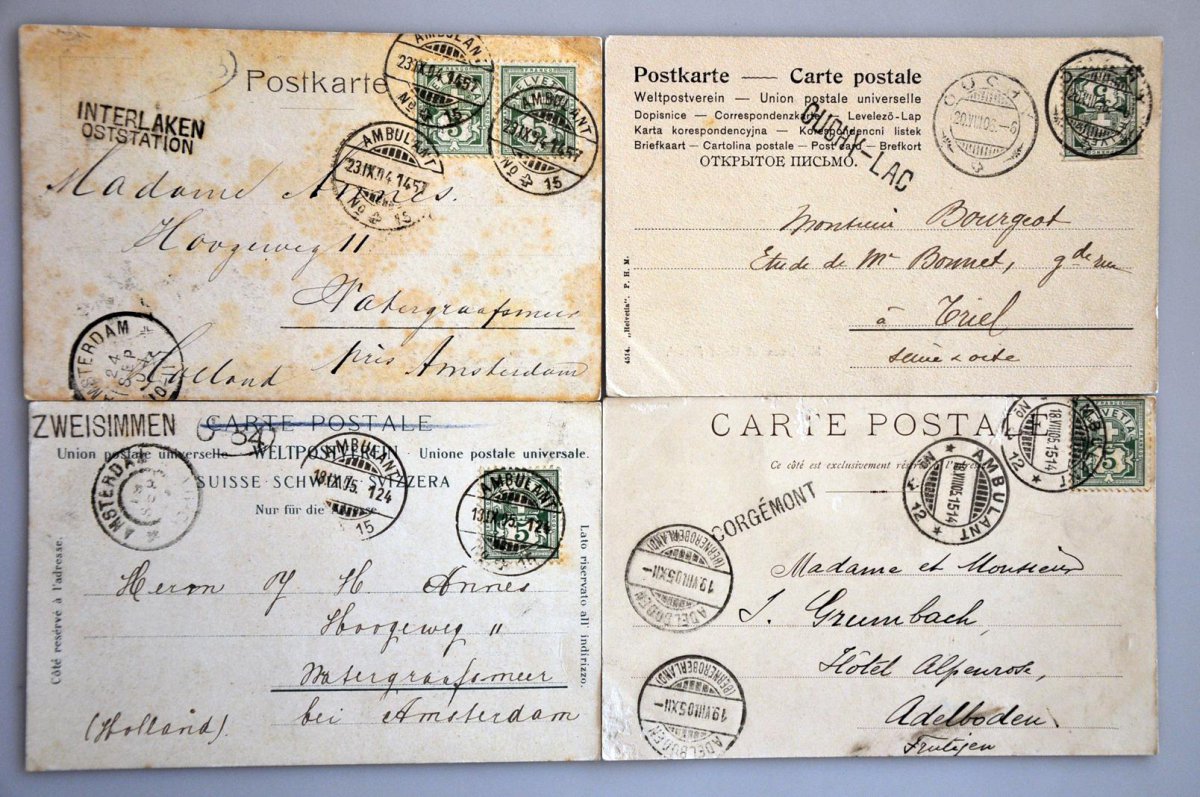 Postkarte
INTERLAKEN
OSTSTATION
AMBULANT
23.IX.04 1457
No 15
AMBULANT
23.IX.04 1457
No 15
AMBULANT
23.IX.04 1457
No 15
FRANCO
Madame Annes.
Hoogeweg 11
Watergraafsmeer
près Amsterdam
Holland
AMSTERDAM
24
SEP
Postkarte — Carte postale
Weltpostverein — Union postale universelle
Dopisnice — Correspondenzkarte — Levelező-Lap
Karta korespondencyjna — Korespondencni listek
Briefkaart — Cartolina postale — Post card — Brefkort
ОТКРЫТОЕ ПИСЬМО.
OUCHY-LAC
OUCHY
Monsieur Bourgeot
Etude de Mr Bonnet, gde rue
à Triel
Seine & Oise
4514. „Helvetia" P. H. M.
ZWEISIMMEN
CARTE POSTALE
Union postale universelle — WELTPOSTVEREIN — Unione postale universale.
SUISSE SCHWEIZ SVIZZERA
Nur für die
AMBULANT
15
AMBULANT
5
AMSTERDAM
Côté reservé à l'adresse.
Lato riservato all' indirizzo.
Herrn J H Annes
Hoogeweg 11
Watergraafsmeer
bei Amsterdam
(Holland).
CARTE POSTALE
Ce côté est exclusivement réservé à l'adresse
CORGÉMONT
AMBULANT
No 12
18.VIII.05.15 14
No 12
18.VIII.05.15 14
FRANCO
HELVETIA
5
ADELBODEN
(BERNEROBERLAND)
19.VIII.05.XII
ADELBODEN
(BERNEROBERLAND)
19.VIII.05.XII
Madame et Monsieur
S. Grumbach
Hôtel Alpenrose,
Adelboden
Frutigen